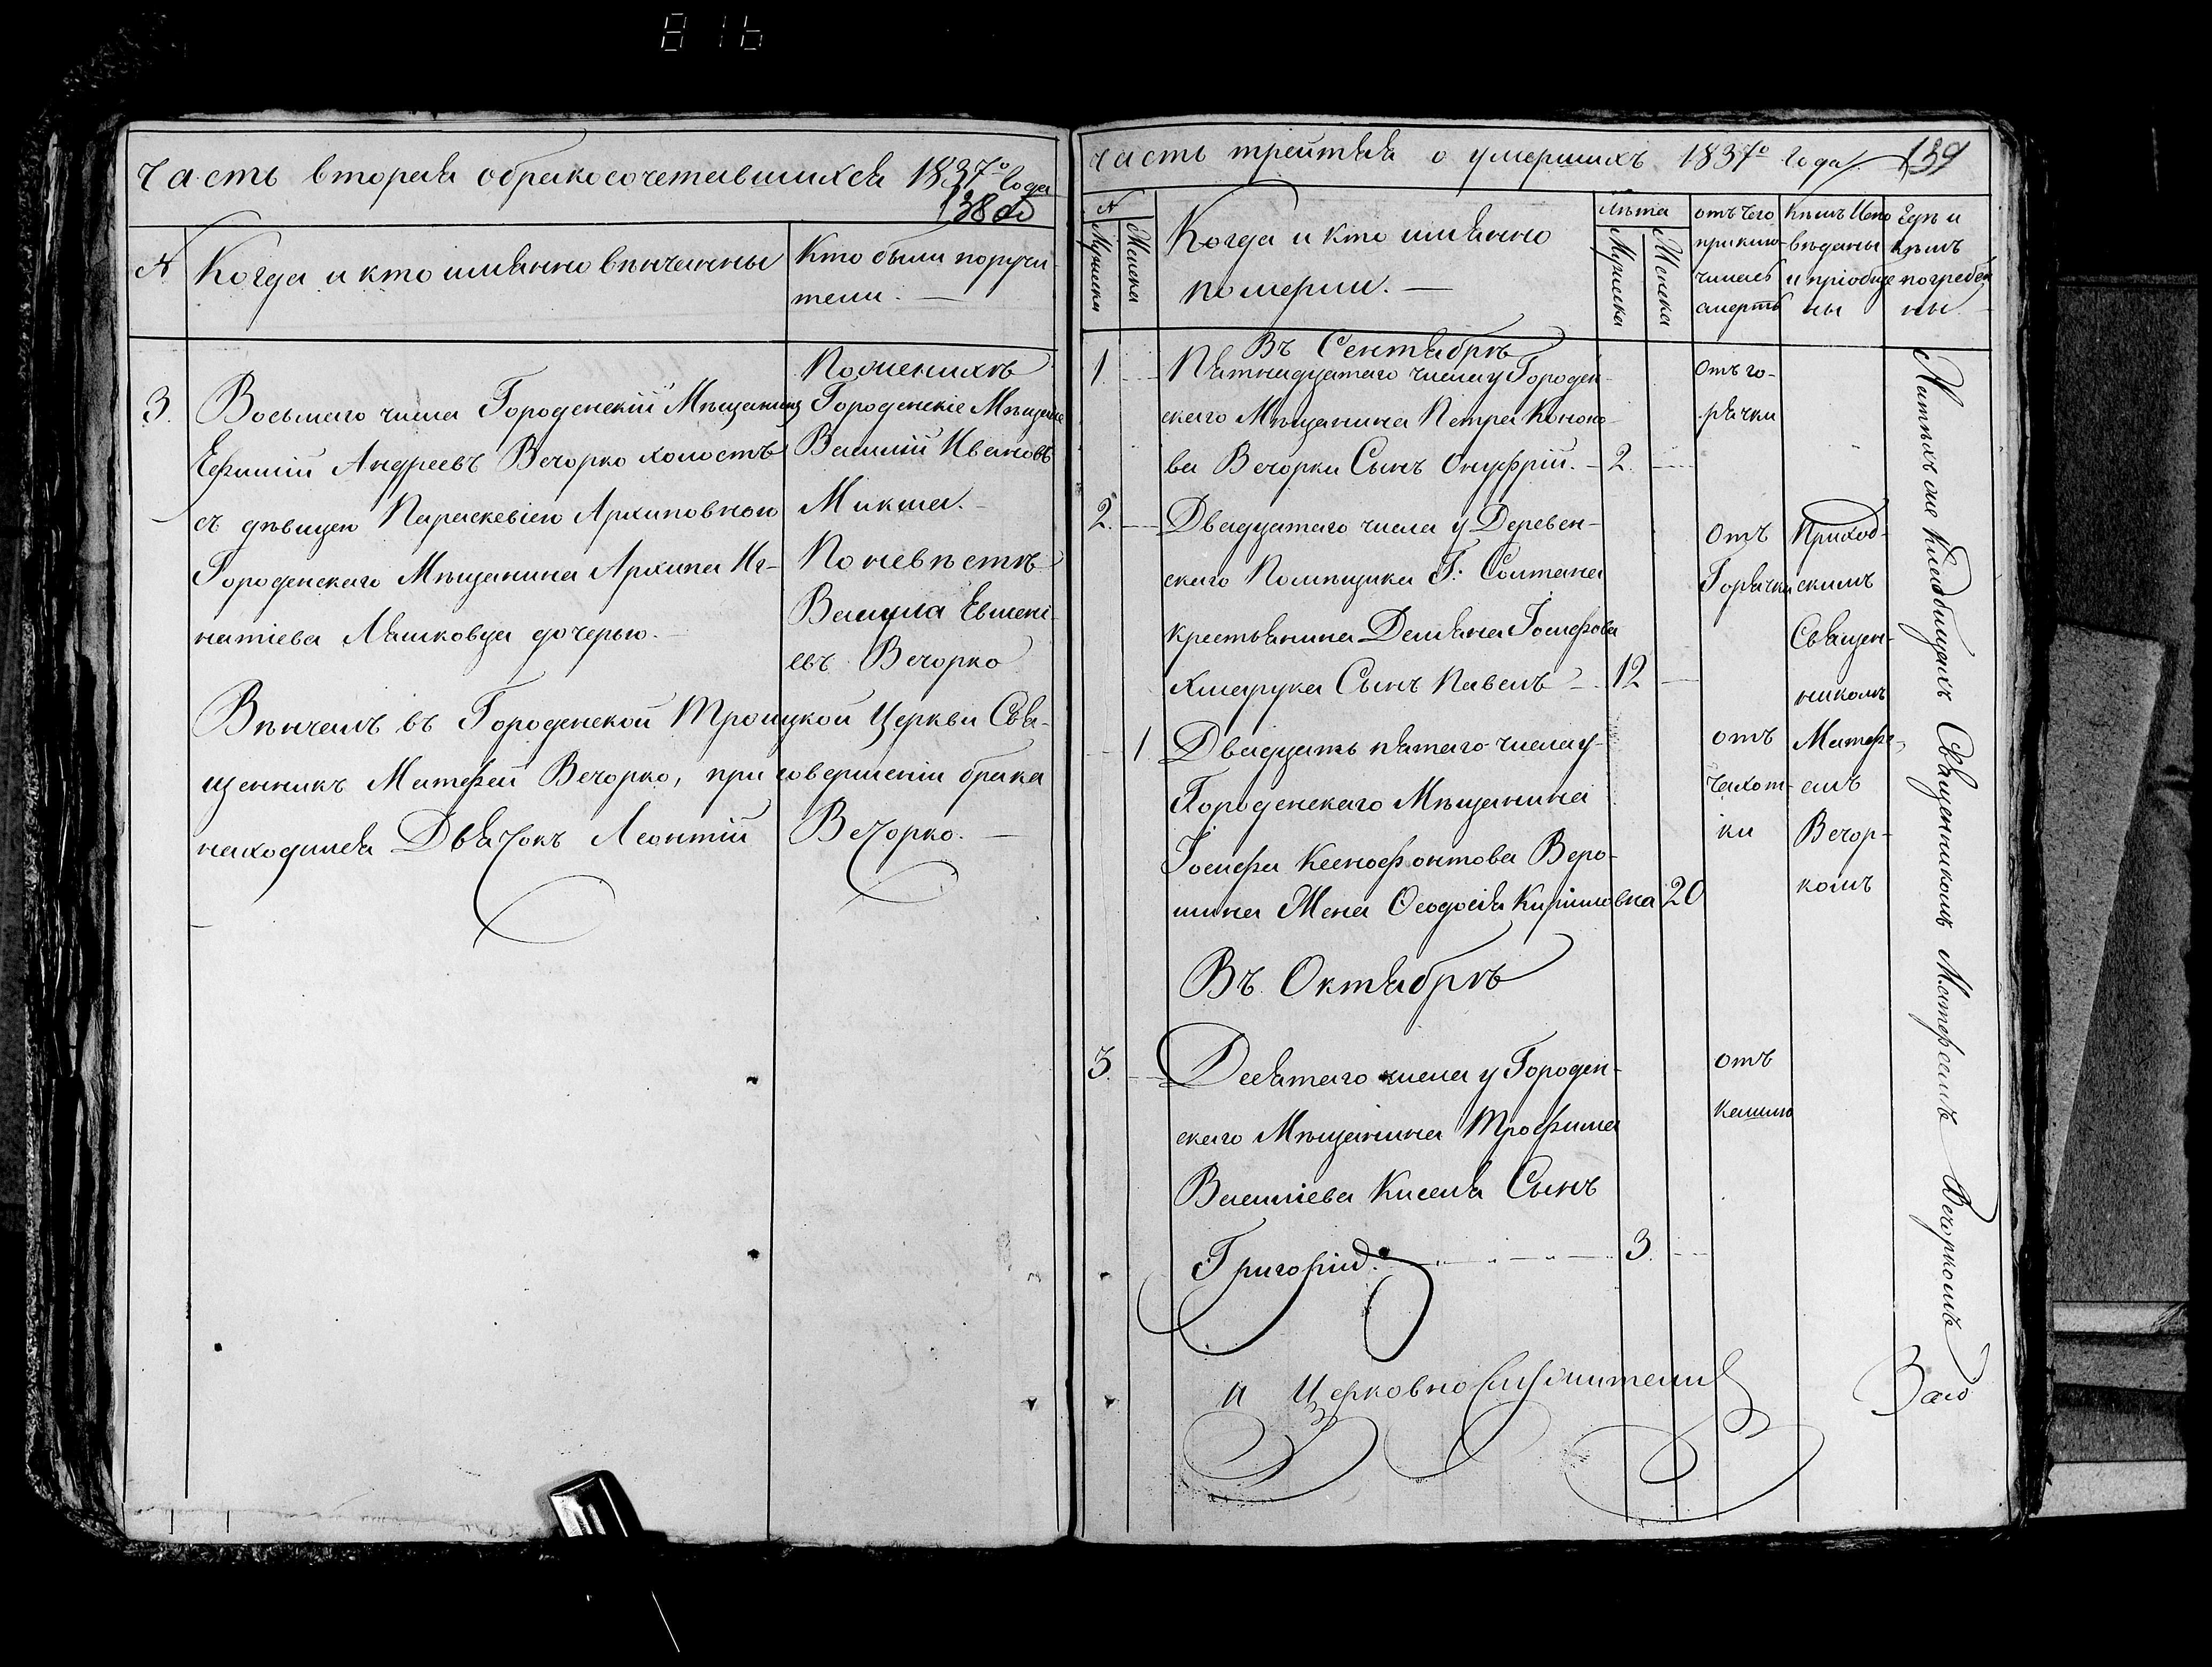 816
Часть вторая о бракосочетавшихся 1837го Года
138 об
№
Когда и кто имянно венчанны
Кто были поручи-
тели. —
3.
Восьмаго числа Городенскій Мѣщанинъ
Ефимій Андреевъ Вечорко холостъ
съ дѣвицею Параскевіею Архиповною
Городенскаго Мѣщанина Архипа Иг-
натіева Ляшковца дочерью. —
По женихѣ
Городенскіе Мѣщане
Василій Ивановъ
Микша. —
По невѣстѣ
Василіа Евмені-
евъ Вечорко
Вѣнчалъ въ Городенской Троицкой Церкви Свя-
щенникъ Матфей Вечорко, при совершеніи брака
находился Дьячокъ Леонтій Вечорко. —
Часть трейтяя о умершихъ 1837го Года.
139
№
Мужеска
Женска
Когда и кто имянно
померли. —
Лѣта
Мужеска
Женска
отъ чего
приклю-
чилась
смерть
Кѣмъ Испо
вѣданы
и пріобще
ны
Гдѣ и
Кѣмъ
погребен
ны
Въ Сентябрѣ
1.
Пятнадцатаго числа у Городен-
скаго Мѣщанина Петра Кононо-
ва Вечорки Сынъ Онуфрій. — 2.
отъ го-
рячки
2.
Двадцатаго числа у Деревен-
скаго Помѣщика Г: Солтана
крестьянина Демяна Іосифова
Хмарука Сынъ Павелъ — 12
отъ
Горячки
Приход-
скимъ
Священ-
никомъ
Матфе-
емъ
Вечор-
комъ
1
Двадцать пятаго числа у
Городенскаго Мѣщанина
Іосифа Ксенофонтова Веро-
мина Жена Ѳеодосія Кирилловна 20
отъ
чахот-
ки
Въ Октябрѣ
3.
Десятаго числа у Городен-
скаго Мѣщанина Трофима
Василіева Киселя Сынъ
Григорій. 3.
отъ
кашлю
На тѣхъ же Кладбищахъ Священникомъ Матфеемъ Вечоркомъ
и Церковно Служители